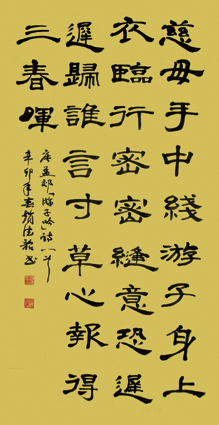 慈母手中綫游子身上
衣臨行密密縫意恐遲
遲歸誰言寸草心報得
三春暉
唐孟郊「游子吟」詩
辛卯年